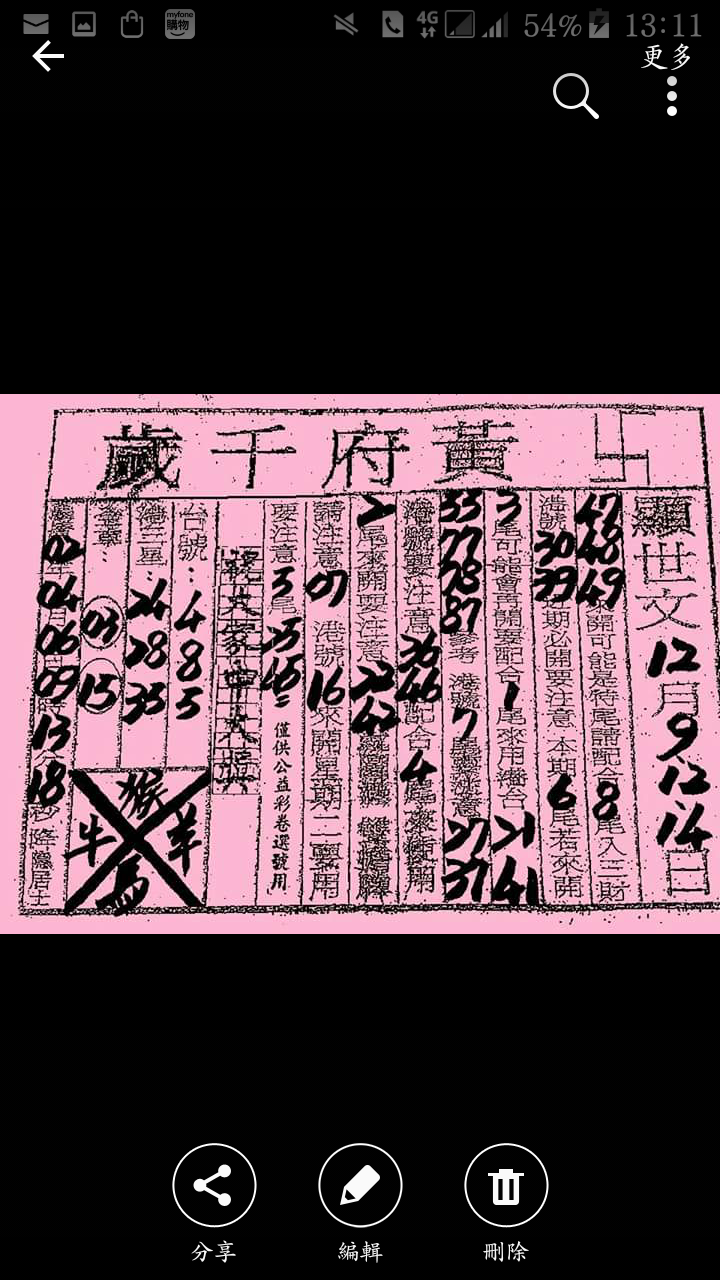 myfone
購物
4G
54%
13:11
更多
黃府千歲
顯世文 12月 9 12 14日
47 48 49 來開可能是特尾請配合 8 尾入三財
港號 30 39 近期必開要注意 本期 6 尾若來開
3 尾可能會再開要配合 1 尾來用 21 41
33 77 78 87 參考 港號 7 尾 27 37
要注意 36 46 配合 4 尾
2 尾來開要注意 22 42
需注意 07 港號 16 來開星期二要用
要注意 5 尾 25 45 僅供公益彩卷選號用
祝大家中大獎
台號: 4 8 5
三星: 24 28 35
03 15
02 04 06 09 13 18 秒 降隱居士
猴
牛 羊
馬
分享
編輯
刪除